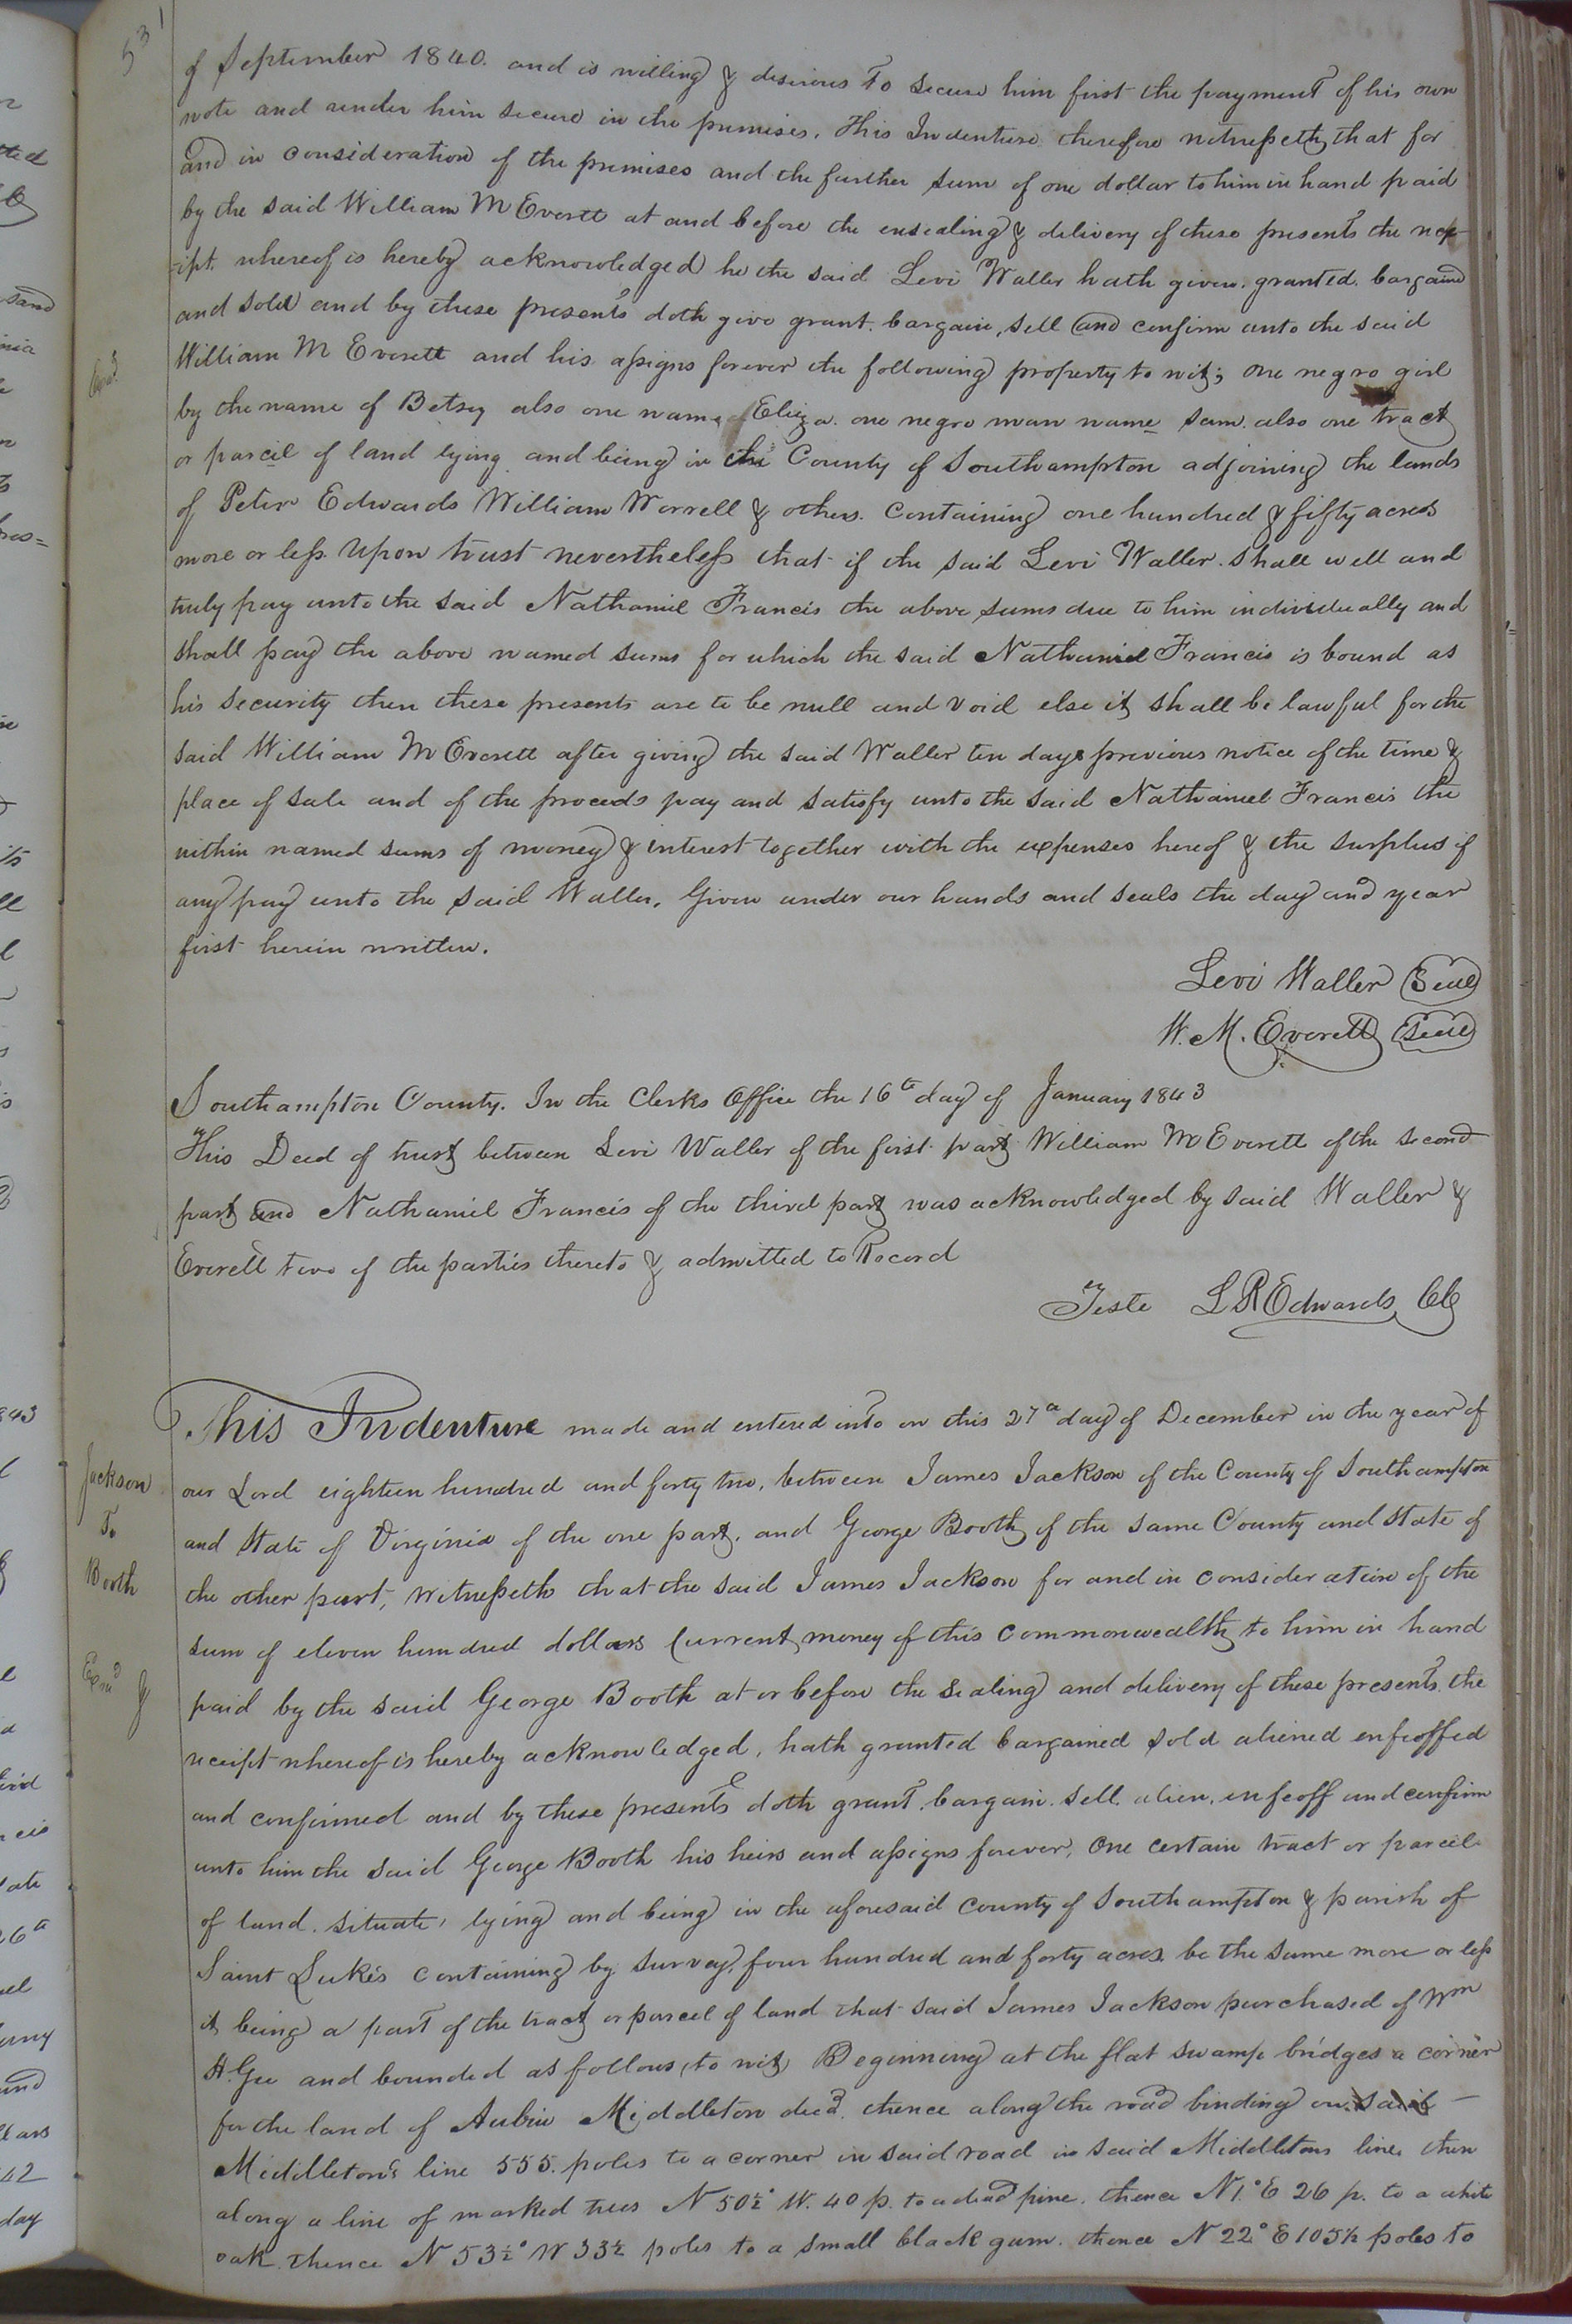 531
of September 1840. and is willing & desirous to secure him first the payment of his own
note and render him secure in the premises. This Indenture therefore witnesseth, that for
and in consideration of the premises and the further sum of one dollar to him in hand paid
by the said William M Everett at and before the ensealing & delivery of these presents the rece-
-ipt. whereof is hereby acknowledged he the said Levi Waller hath given. granted. bargained
and sold and by these presents doth give grant. bargain, sell and confirm unto the said
William M Everett and his assigns forever the following property to wit; one negro girl
by the name of Betsy also one name Eliza. one negro man name Sam. also one tract
or parcel of land lying and being in the County of Southampton adjoining the lands
of Peter Edwards William Worrell & others. Containing one hundred & fifty acres
more or less Upon trust nevertheless that if the said Levi Waller. shall well and
truly pay unto the said Nathaniel Francis the above sums due to him individually and
shall pay the above named sums for which the said Nathaniel Francis is bound as
his security then these presents are to be null and void else it shall be lawful for the
said William M Everett after giving the said Waller ten days previous notice of the time &
place of sale and of the proceeds pay and satisfy unto the said Nathaniel Francis the
within named sums of money & interest together with the expenses hereof & the surplus if
any pay unto the said Waller. Given under our hands and seals the day and year
first herein written.
Levi Waller Seal
W. M. Everett Seal
Southampton County. In the Clerks Office the 16th day of January 1843
This Deed of trust between Levi Waller of the first part William M Everett of the second
part and Nathaniel Francis of the third part was acknowledged by said Waller &
Everett two of the parties thereto & admitted to Record
Teste L R Edwards CC
Jackson
To
Booth
Exmd
This Indenture made and entered into on this 27th day of December in the year of
our Lord eighteen hundred and forty two, between James Jackson of the County of Southampton
and State of Virginia of the one part. and George Booth of the same County and State of
the other part, witnesseth that the said James Jackson for and in consideration of the
sum of eleven hundred dollars Current money of this commonwealth, to him in hand
paid by the said George Booth at or before the sealing and delivery of these presents, the
receipt whereof is hereby acknowledged, hath granted bargained sold aliened enfeoffed
and confirmed and by these presents doth grant, bargain. sell. alien. enfeoff and confirm
unto him the said George Booth his heirs and assigns forever, One certain tract or parcel
of land. situate, lying and being in the aforesaid county of Southampton & parish of
Saint Lukes containing by survey, four hundred and forty acres be the same more or less
it being a part of the tract or parcel of land that said James Jackson purchased of Wm
H. Gee and bounded as follows, to wit, Beginning at the flat swamp bridges a corner
for the land of Aubin Middleton decd. thence along the road binding on said
Middleton's line 555. poles to a corner in said road in said Middletons line, then
along a line of marked trees N 50½° W. 40 p. to a dead pine. thence N 1° E 26 p. to a white
oak. thence N 53½° W 33½ poles to a small black gum. thence N 22° E 105½ poles to